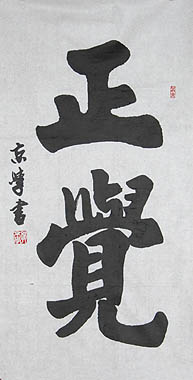 正覺
京學書